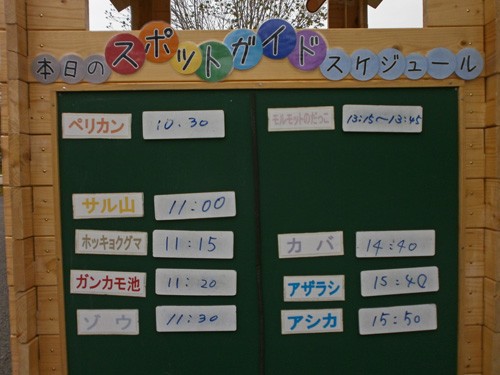 本日のスポットガイドスケジュール
ペリカン 10.30
サル山 11:00
ホッキョクグマ 11:15
ガンカモ池 11:20
ゾウ 11:30
モルモットのだっこ 13:15~13:45
カバ 14:40
アザラシ 15:40
アシカ 15:50